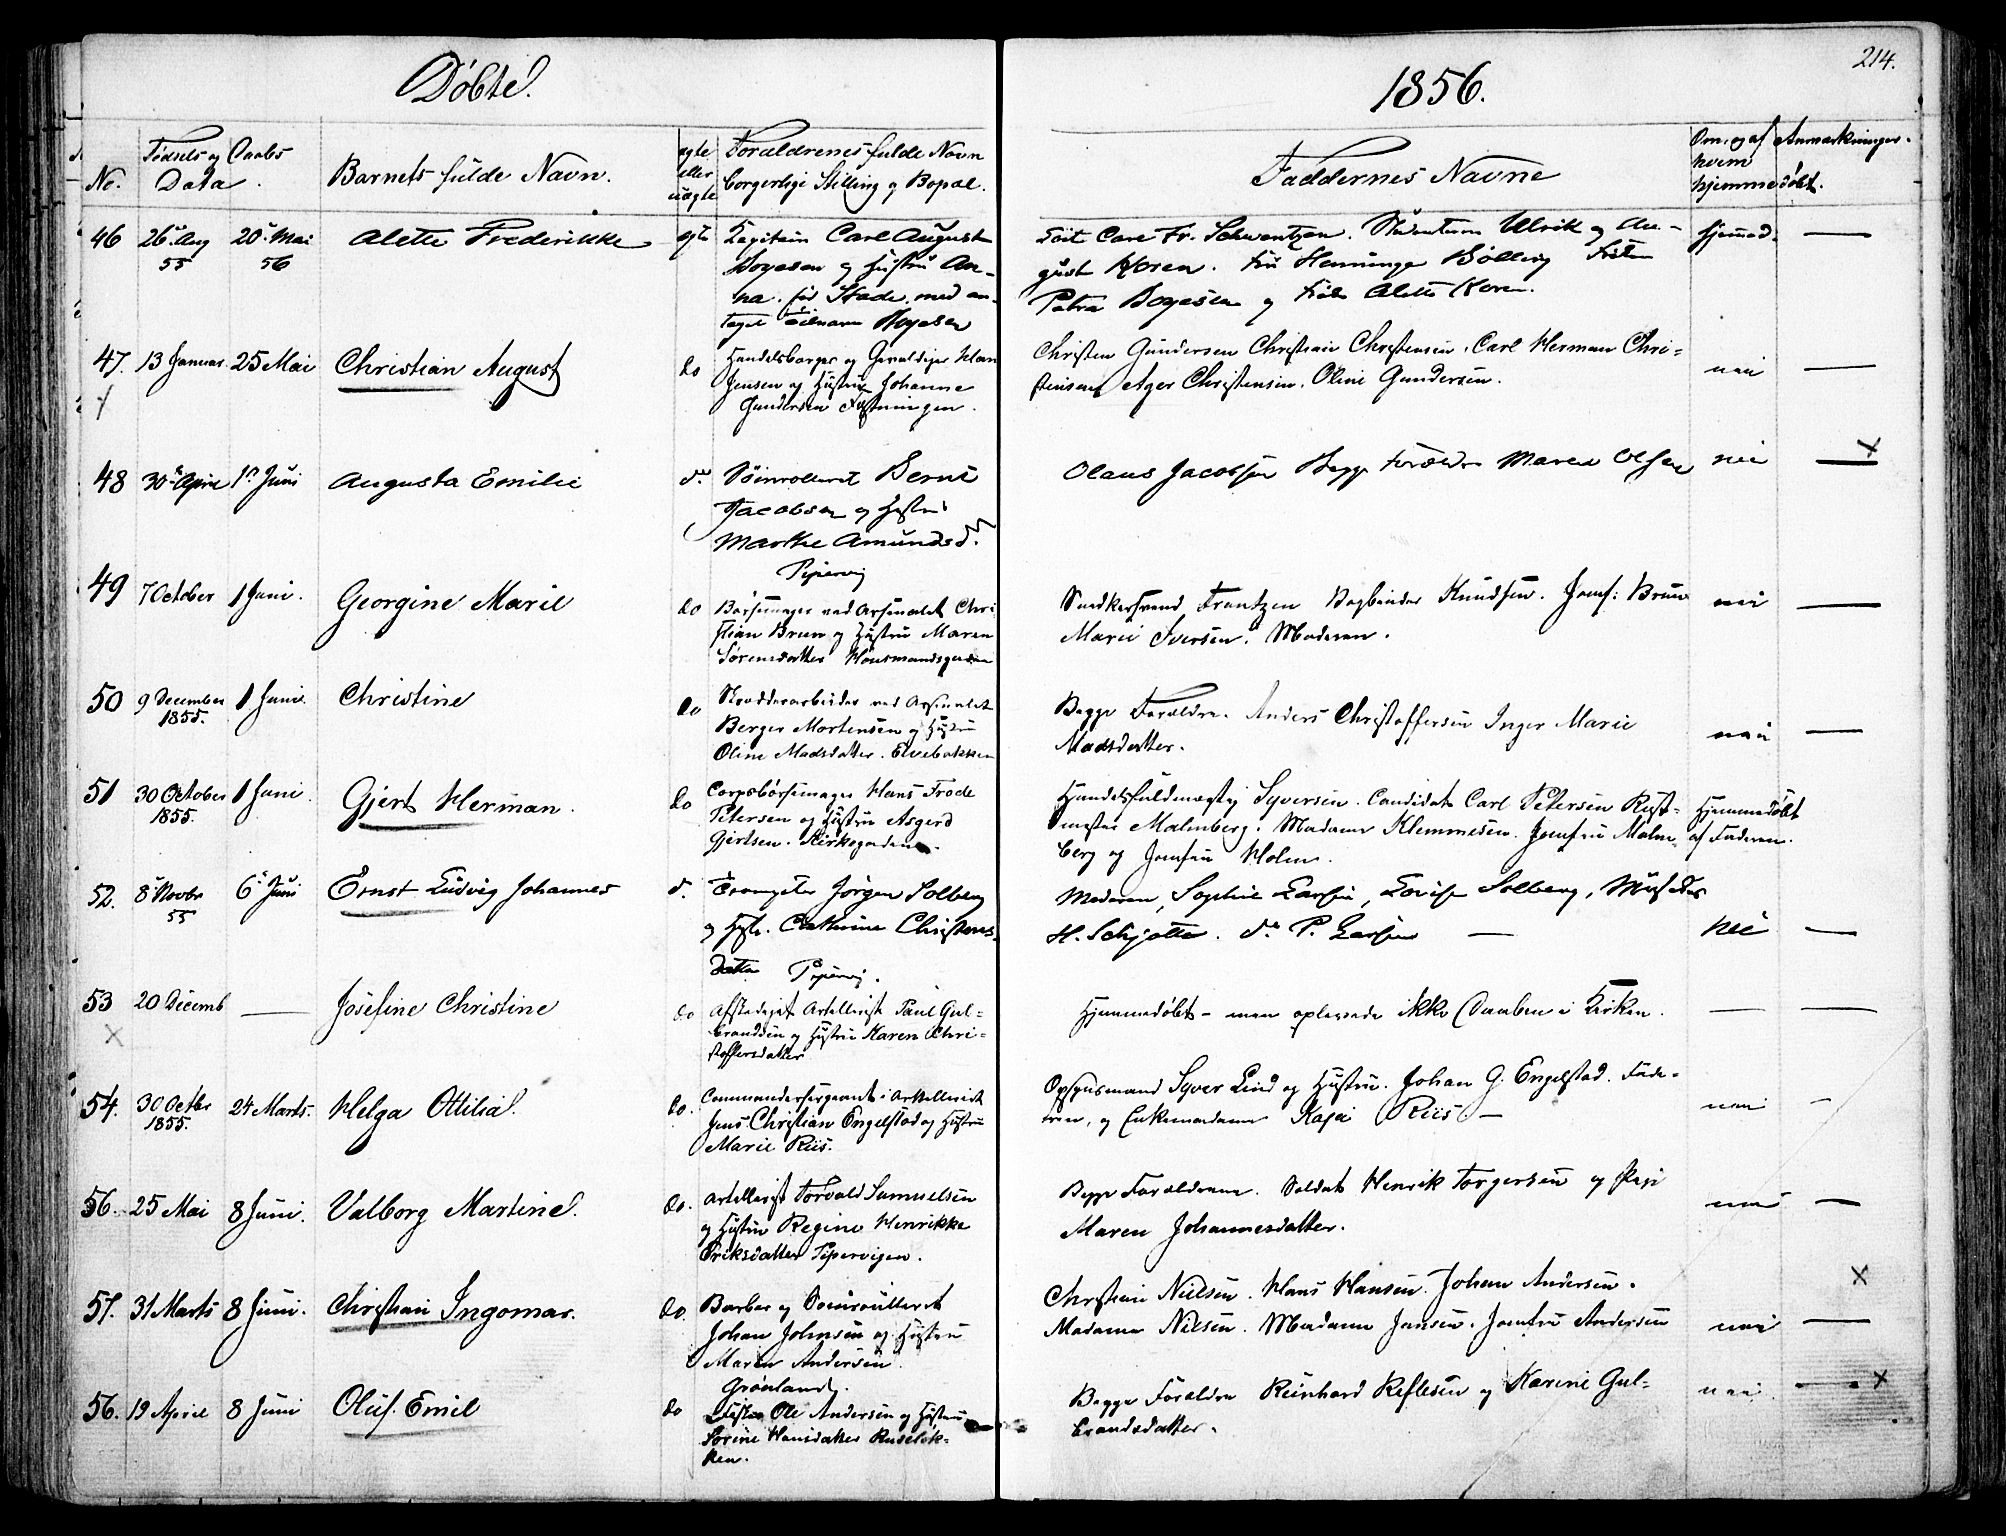 Døbte.
1856.
214.
No.
Fødsels og Daabs
Data.
Barnets fulde Navn.
ægte
eller
uægte
Forældrenes fulde Navn
borgerlige Stilling og Bopæl.
Faddernes Navne
Om, og af
hvem
hjemmedøbt.
Anmærkninger.
46 26 Aug 55 20 Mai 56 Alette Frederikke ægte Kapitain Carl August
og Hustru An-
na. fød Stade, med an-
taget
Carl Fr. Schwentzen. Studenterne Ulrik og Au-
gust Koren.
Petra og Alette Koren.
hjemmed.
47. 13 Januar 25 Mai Christian August do Handelsborger og Gevaldiger Hans
Jensen og Hustru Johanne
Gundersen Fæstningen.
Christen Gundersen Christian Christensen. Carl Herman Chri-
stensen Christensen. Oline Gundersen.
nei
48 30 April 1 Juni Augusta Emilie do Bernt
Jacobsen og Hustru
Marthe Amundsd.
Pipervig
Olaus Jacobsen Begge Forældre Maren Olsen nei
49 7 October 1 Juni. Georgine Marie do Børsemager ved Arsenalet Chri
stian Brun og Hustru Maren
Sørensdatter
Snedkersvend Frantzen Bogbinder Knudsen. Jomf: Brun
Marie Iversen. Moderen.
nei
50 9 December 1855. 1 Juni. Christine do ved Arsenalet
Berger Mortensen og Hustru
Oline Madsdatter. Elvebakken
Begge Forældre. Anders Christoffersen Inger Marie
Madsdatter.
nei
51 30 October 1855. 1 Juni. Gjert Herman. do Corpsbørsemager Hans Frode
Petersen og Hustru Asgerd
Gjertsen. Kirkegaden.
Handelsfuldmægtig Syversen. Candidat Carl Petersen Rust-
mester Malmberg. Madame Klemmesen. Jomfru Malm-
berg og Jomfru Holm.
Hjemmedøbt
af Faderen.
52. 8 Novbr 55 6 Juni Ernst Ludvig Johannes d. Jørgen Solberg
og Hust. Cathrine Christens-
datter Pipervig.
Moderen, Sophie Larsen, Lovise Solberg,
H. Schjøtte. do P. Larsen
nei
53 20 Decemb — Josefine Christine do Afskediget Artillerist Paul Gul-
brandsen og Hustru Karen Chri-
stoffersdatter
Hjemmedøbt - men oplæstede ikke Daaben i Kirken.
54. 30 Octbr 1855. 24 Marts. Helga Ottilia. do. Commandersergeant i Artilleriet
Jens Christian Engelstad og Hustru
Marie Riis.
Opsynsmand Syver Lind og Hustru. Johan G. Engelstad. Fade-
ren, og Enkemadame Kaja Riis —
nei
56. 25 Mai 8 Juni. Valborg Martine. do. Artillerist Torvald Samuelsen
og Hustru Regine Henrikke
Eriksdatter Pipervigen.
Begge Forældrene. Soldat Henrik Torgersen og Pige
Maren Johannesdatter.
nei
57. 31 Marts 8 Juni. Christian Ingomar. do. Barber og
Johan Johnsen og Hustru
Maren Andersen.
Grønland.
Christian Nielsen. Hans Hansen. Johan Andersen.
Madame Nielsen. Madame Jansen. Jomfru Andersen
nei
56. 19 April 8 Juni Oluf Emil do Ole Andersen og Hustru
Sorine Hansdatter Ruseløk-
ken.
Begge Forældre Reinhard Reflesen og Karine Gul-
brandsdatter.
nei